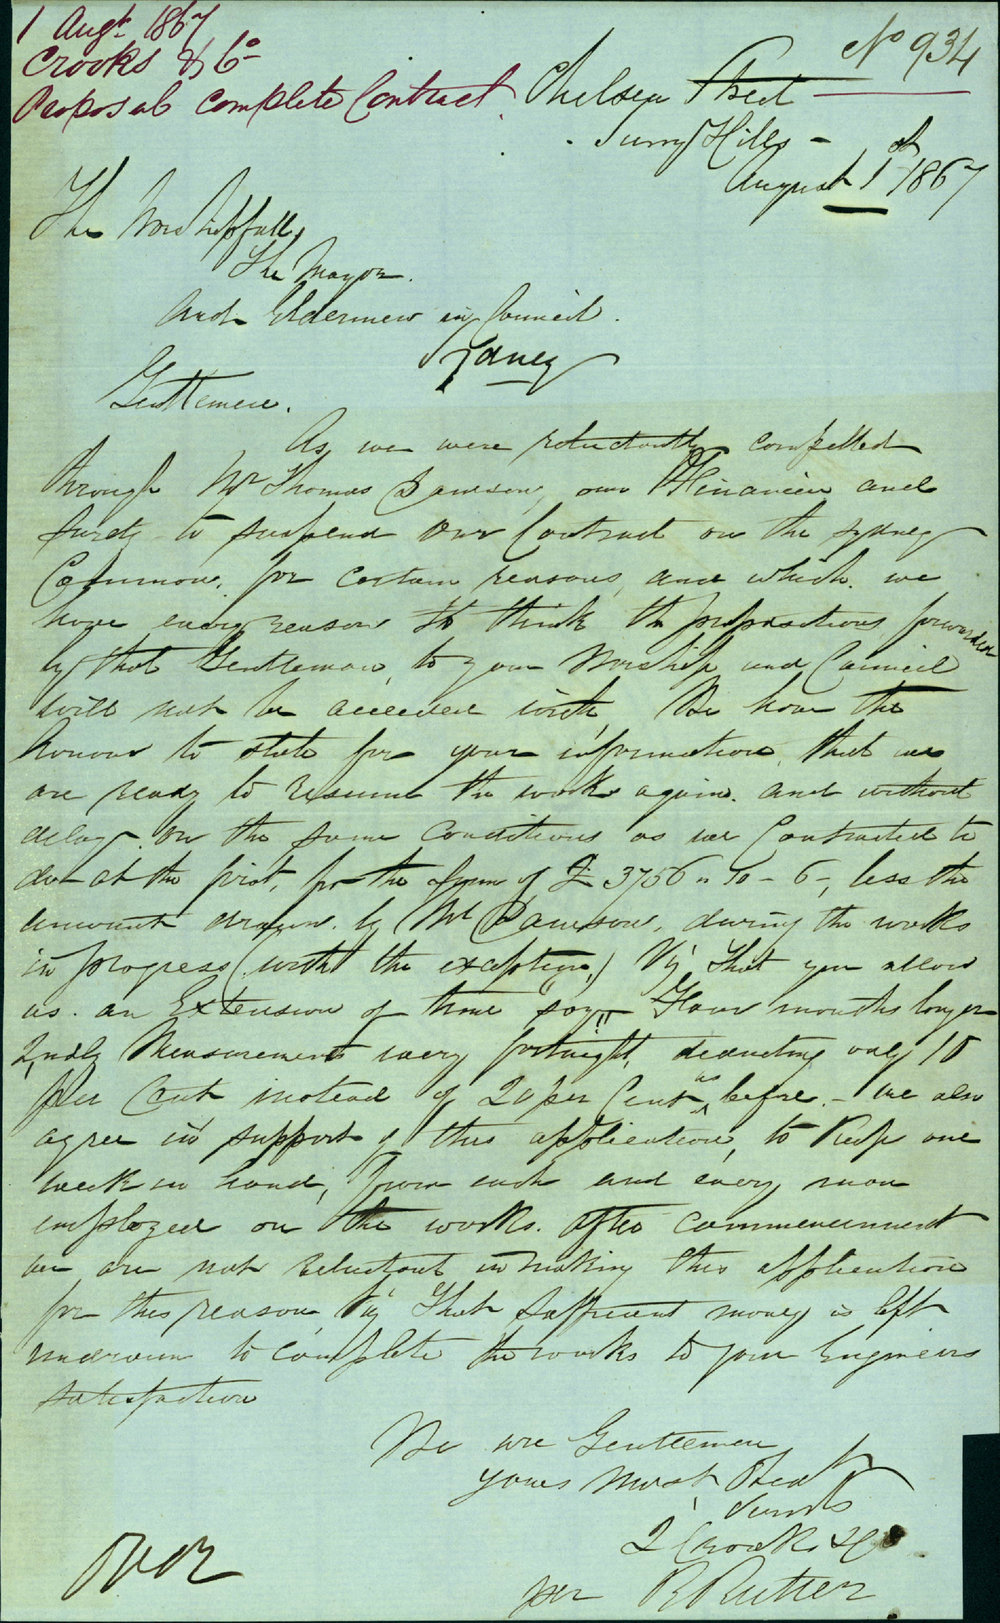 1 Augt 1867
Crooks & Co
Proposal complete Contract
No 934
Chelsea Street
Surry Hills -
August 1st 1867
The Worshipfull,
The Mayor.
And Eldermen in Council.
Sydney
Gentlemen.
As we were reluctantly compelled
through Mr Thomas Dawson, our Financier and
Surety to suspend our Contract on the Sydney
Common, for certain reasons, and which we
have every reason to think the propositions forwarded
by that Gentleman, to your Worship and Council
will not be acceeded with, We have the
honour to state for your information, that we
are ready to resume the works again. and without
delay. on the same Conditions as we Contracted to
do at the first, for the Sum of £ 3756 " 10 - 6 -, less the
amount drawn. by Mr Dawson, during the works
in progress (with the exception,) Viz That you allow
us. an Extension of time say Four months longer
2ndly Measurements every fortnight, deducting only 10
per Cent instead of 20 per Cent as before. - we also
agree in support of this application, to keep one
week in hand, from each and every man
employed on the works. after commencement
we are not reluctant in making this application
for this reason Viz That Sufficient money is left
undrawn to complete the works to your Engineers
satisfaction
We are Gentlemen
yours Most Obedt
Servts
J Crooks & Co
per R Rutter
over